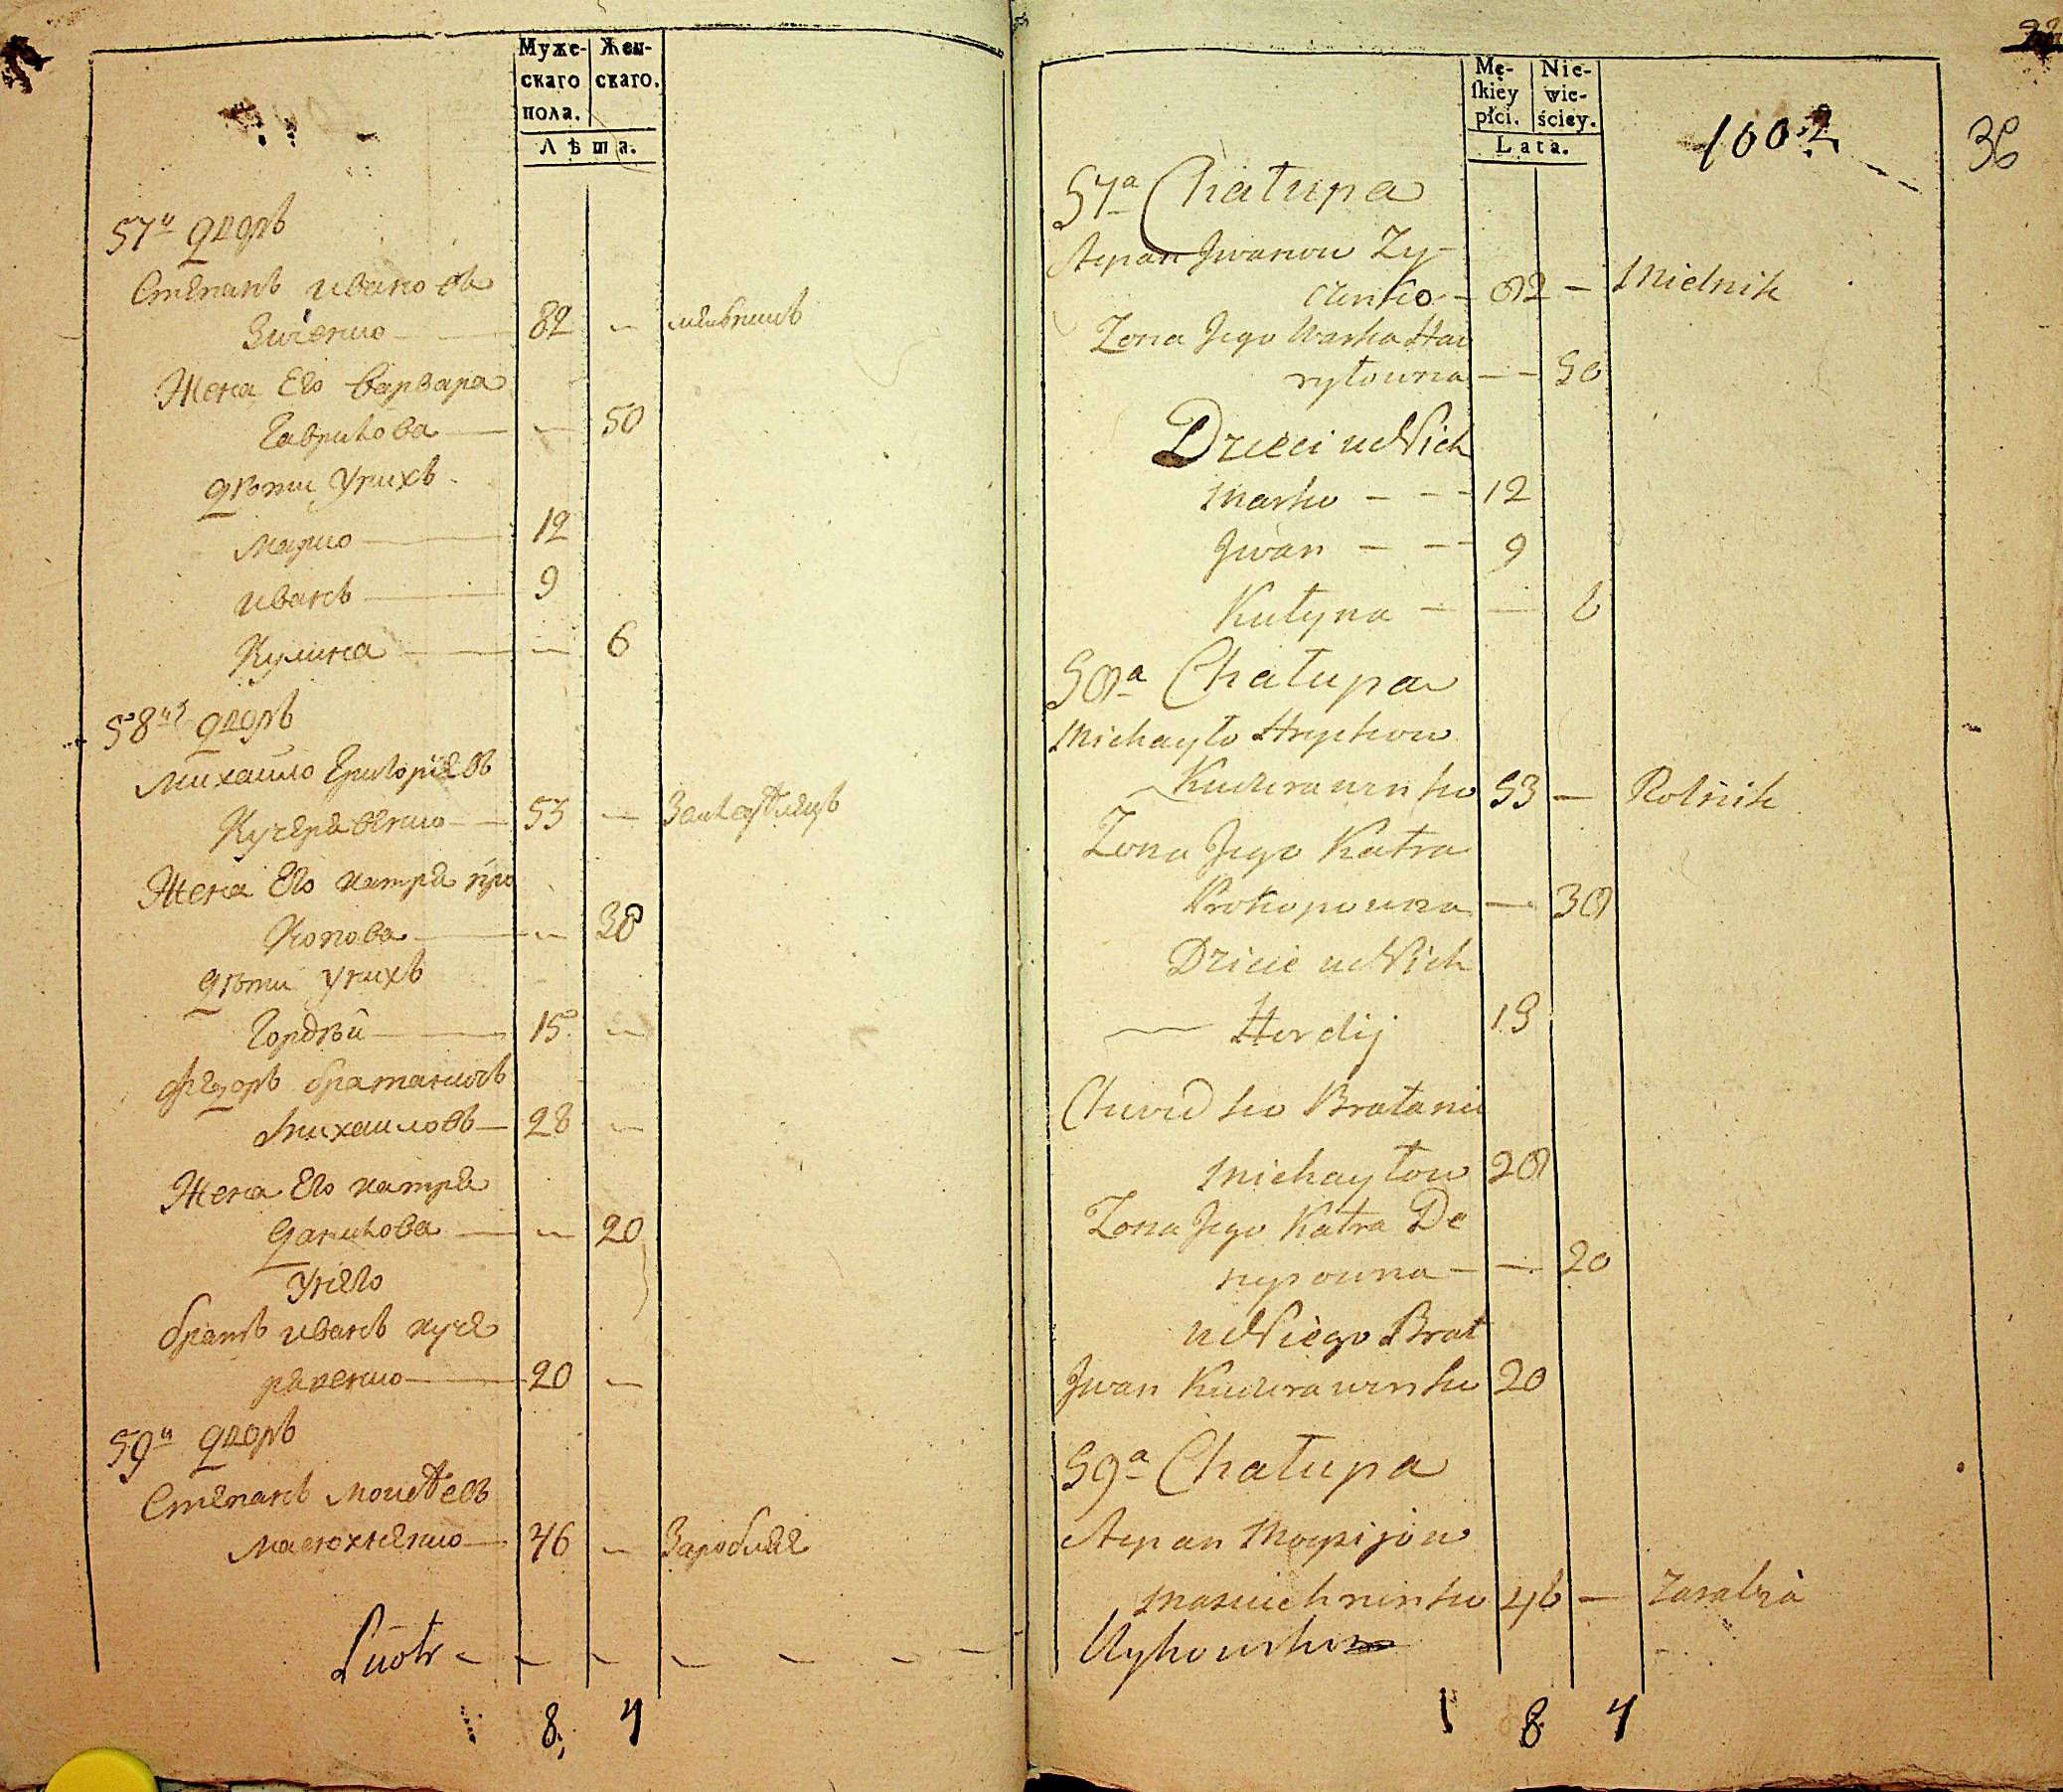 Муже-
скаго
пола.
Жен-
скаго.
Лѣта.
57й дворъ
Степанъ Ивановъ
Зиченко 82 мельникъ
Жена Его Варвара
Гаврилова 50
дѣти Унихъ
Марко 12
Иванъ 9
Кулина 6
58й дворъ
Михайло Григоріевъ
Кучеравенко 53
Жена Его катря про
копова 38
дѣти Унихъ
Гордѣй 15
Федоръ братаничъ
Михаиловъ 28
Жена Его катря
Данилова 20
Унего
братъ Иванъ куче
равенко 20
59й дворъ
Степанъ
46
Piotr
8 4
Mę-
ſkiey
płci.
Nie-
wie-
ściey.
Lata.
1002
36
57a Chałupa
Stepan Jwanow Zy-
czenko 82 Mielnik
Zona Jego Warka Haw
ryłowna 50
Dzieci u Nich
Marko 12
Jwan 9
Kułyna 6
58a Chałupa
Michayło Hryhow
Kuczerawenko 53 Rolnik
Zona Jego Katra
Prokopowna 38
Dzieci u Nich
Hordij 15
Chwedko Bratanic
Michayłow 28
Zona Jego Katra De
20
u Niego Brat
Jwan Kuczerawenko 20
59a Chałupa
Stepan
46 Zarabia
1 8 4